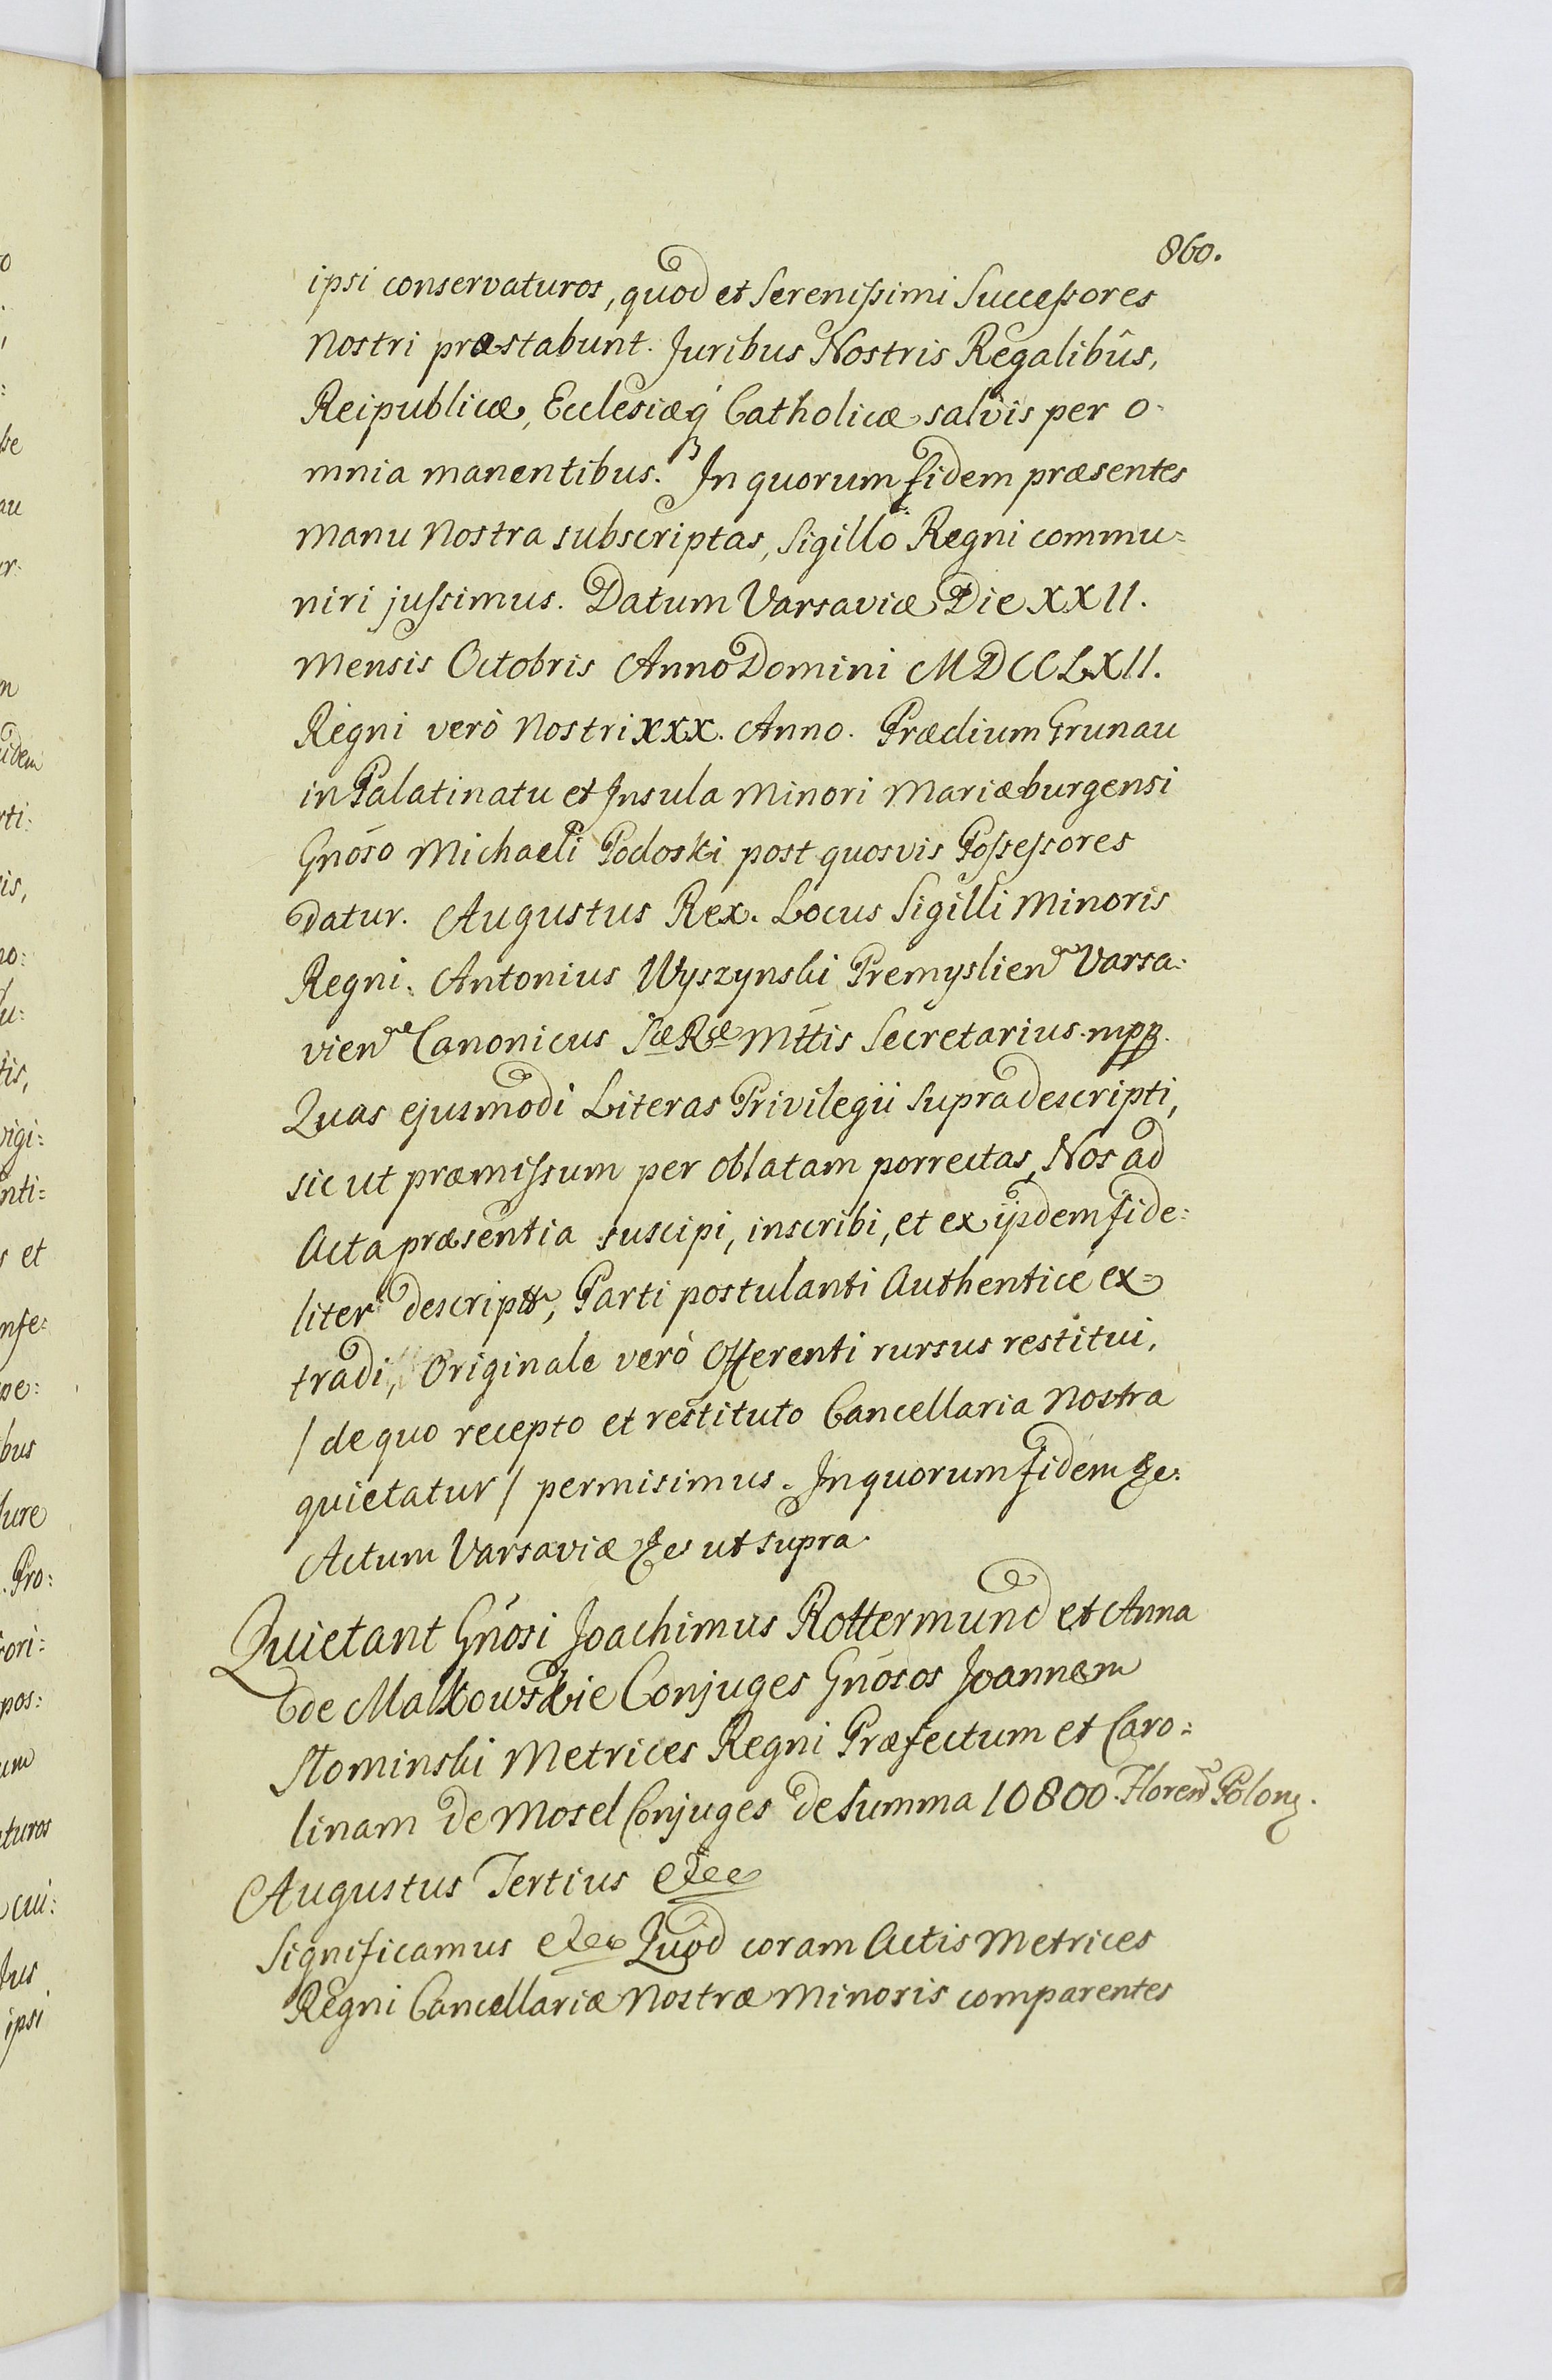 860.
ipsi conservaturos, quod et Serenissimi Successores
Nostri præstabunt. Juribus Nostris Regalibûs,
Reipublicæ, Ecclesiæq́ Catholicæ salvis per o-
mnia manentibus. In quorum fidem præsentes
Manu Nostra subscriptas, Sigillo Regni commu=
niri jussimus. Datum Varsaviæ Die XXII.
Mensis Octobris Anno Domini MDCCLXII.
Regni verò Nostri XXX. Anno. Prædium Grunau
in Palatinatu et Insula Minori Mariæburgensi
Gnõso Michaeli Podoski post quosvis Possessores
datur. Augustus Rex. Locus Sigilli Minoris
Regni. Antonius Wyszynski Premyslien Varsa:
vien Canonicus Sæ Ræ Mttis Secretarius mpp.
Quas ejusmodi Literas Privilegii supradescripti,
sic ut præmissum per oblatam porrectas, Nos ad
Acta præsentia suscipi, inscribi, et ex iisdem fide:
liter descriptt, Parti postulanti Authenticè ex=
tradi, Originale verò Offerenti rursus restitui,
/ de quo recepto et restituto Cancellaria Nostra
quietatur / permisimus. In quorum fidem &c.
Actum Varsaviæ &c ut supra.
Quietant Gnõsi Joachimus Rottermund et Anna
de Malkowskie Conjuges Gnõsos Joannem
Slominski Metrices Regni Præfectum et Caro:
linam de Mosel Conjuges de Summa 10800. Floren Polon.
Augustus Tertius &cc
Significamus &cc Quod coram Actis Metrices
Regni Cancellariæ Nostræ Minoris comparentes